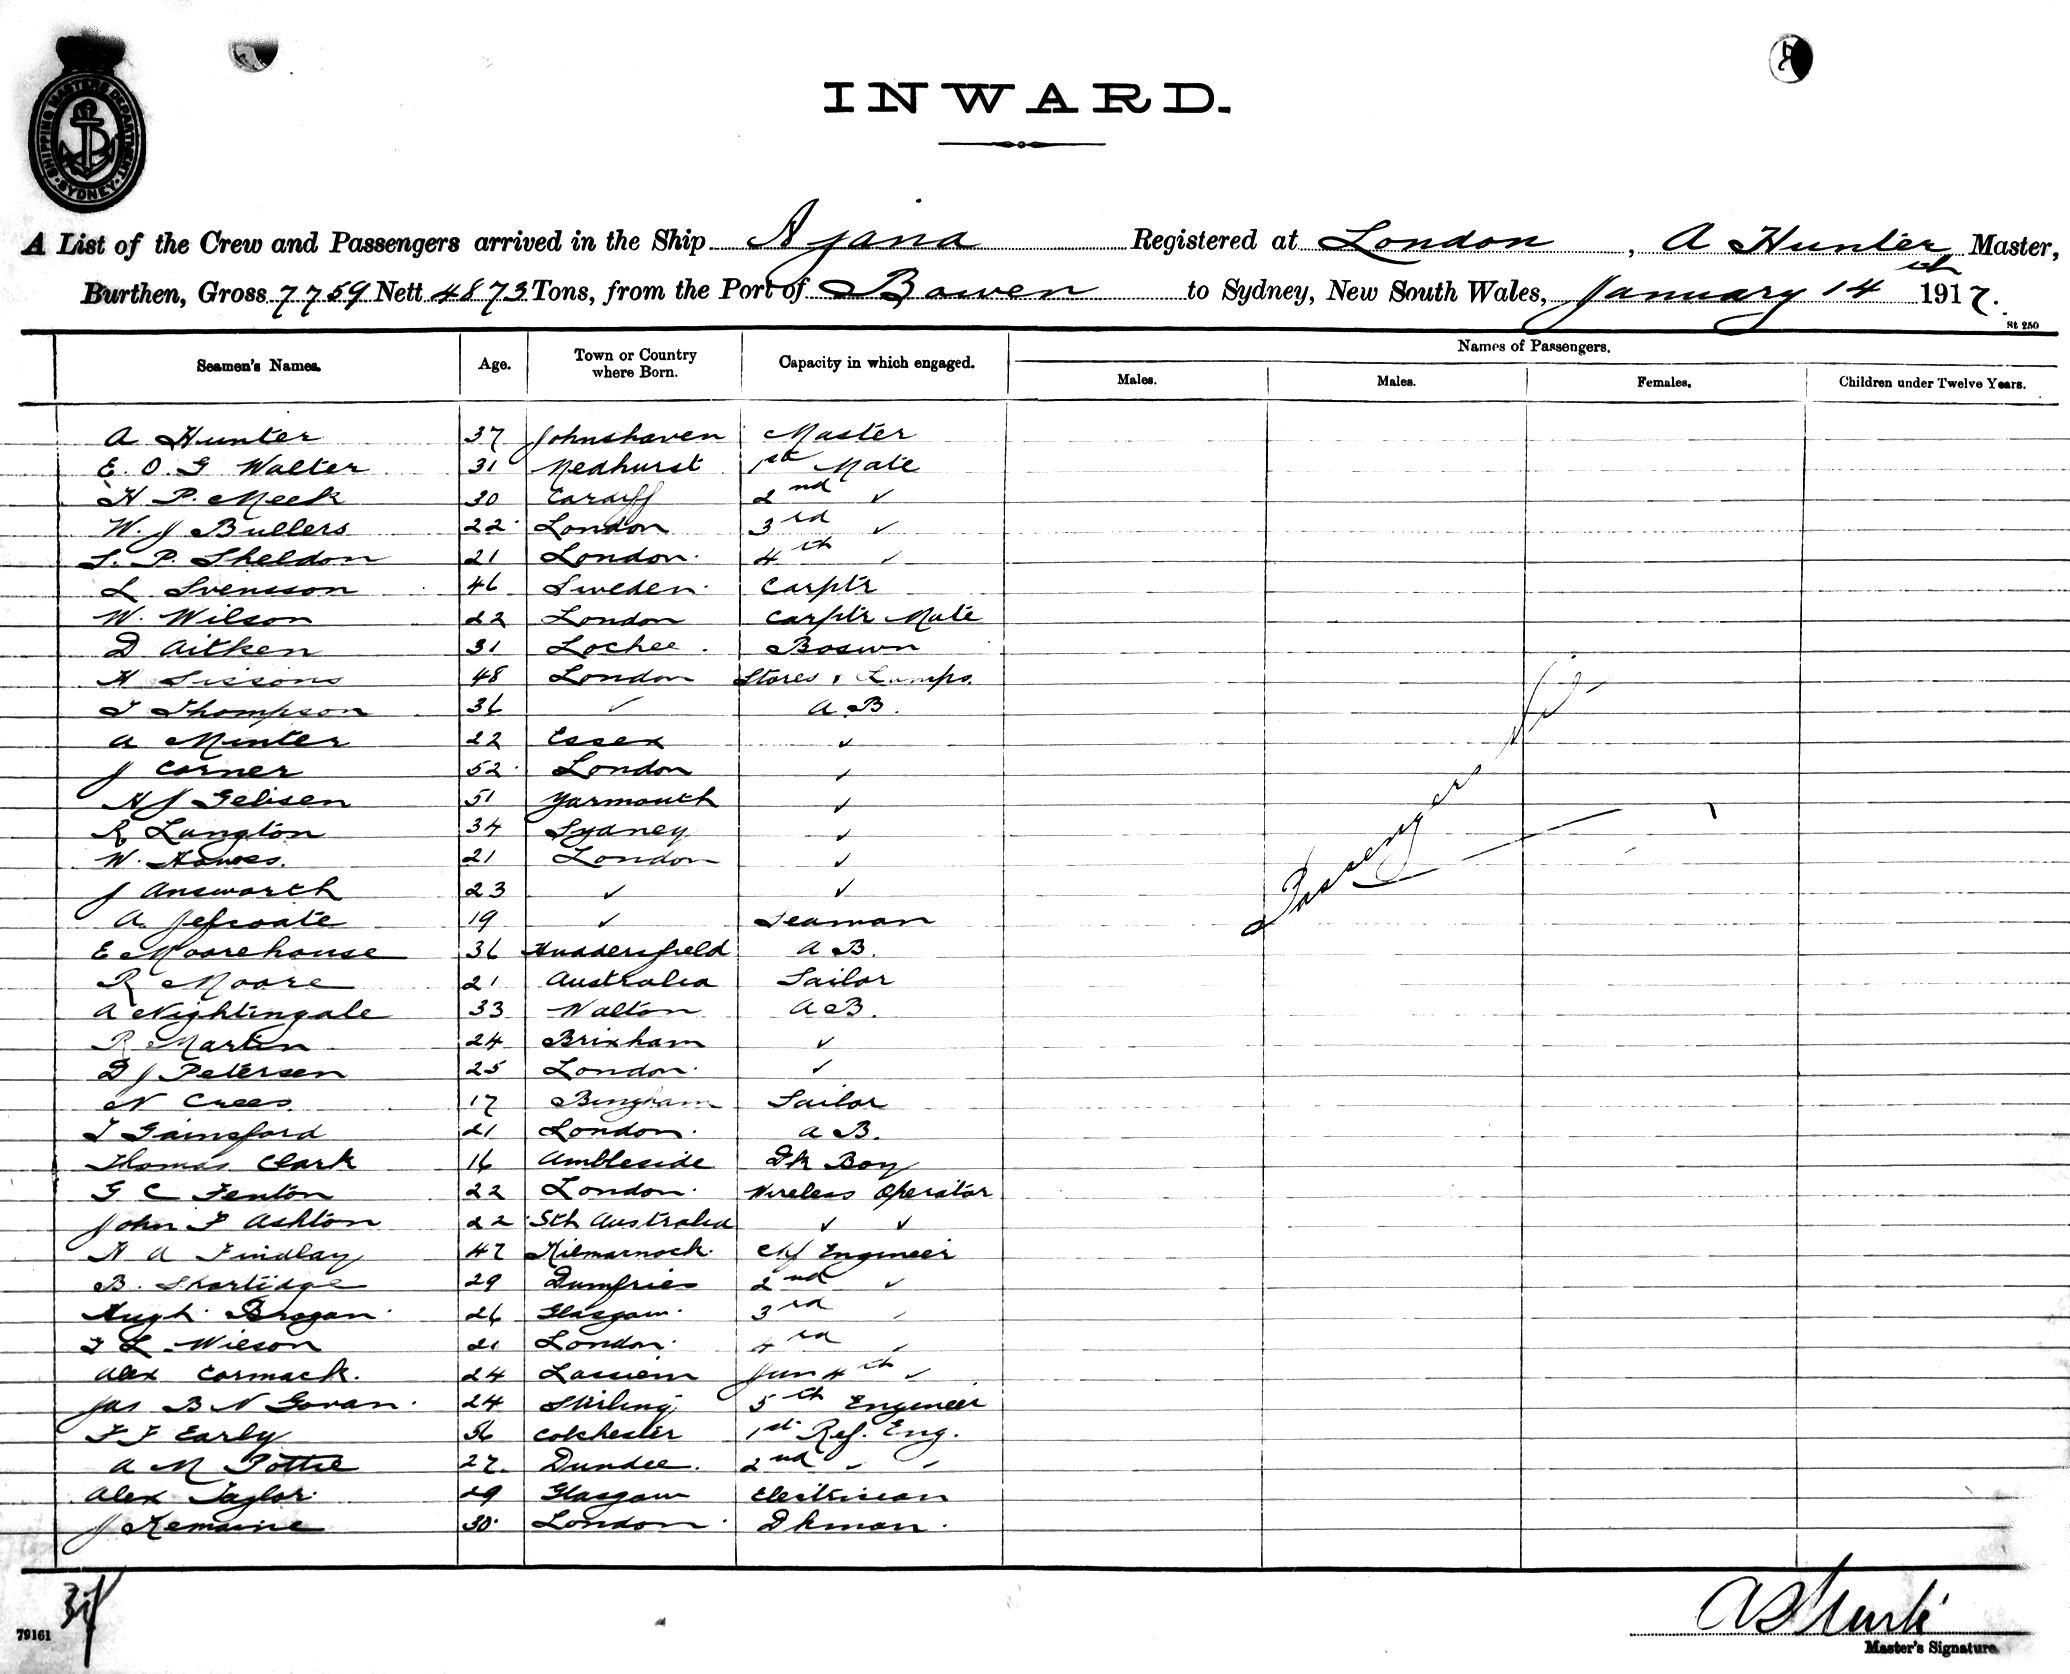 SHIPPING MASTERS DEPARTMENT SYDNEY
INWARD.
A List of the Crew and Passengers arrived in the Ship Ajana Registered at London, A Hunter Master,
Burthen, Gross 7759 Nett 4873 Tons, from the Port of Bowen to Sydney, New South Wales, January 14th 1917.
St 250
Seamen's Names. Age. Town or Country where Born. Capacity in which engaged. Names of Passengers.
Males. Males. Females. Children under Twelve Years.
A Hunter 37 Johnshaven Master
E. O. G Walter 31 Medhurst 1st Mate
H P. Meek 30 Cardiff 2nd ✓
W. J Bullers 22 London 3rd ✓
S. P. Sheldon 21 London. 4th ✓
L Svensson 46 Sweden. Carptr
W. Wilson 22 London Carptr Mate
D Aitken 31 Lochee. Boswn
H Sissons 48 London Stores & Lamps.
T Thompson 36 ✓ A.B.
A Minter 22 Essex ✓
J Corner 52 London ✓
H J Gelisen 51 Yarmouth ✓
R Langton 34 Sydney ✓
W. Hawes. 21 London ✓
J Answorth 23 ✓ ✓
A. Jefcoate 19 ✓ Seaman
E Moorehouse 36 Huddersfield A B.
R Moore 21 Australia Sailor
A Nightingale 33 Walton A B.
R Martin 24 Brixham ✓
D J Petersen 25 London. ✓
N Crees. 17 Bingham Sailor
T Gainsford 21 London. A B.
Thomas Clark 16 Ambleside Dk Boy
G C Fenton 22 London. Wireless Operator
John F Ashton 22 Sth Australia ✓ ✓
H A Findlay 47 Kilmarnock. Chf Engineer
B. Shortidge 29 Dumfries 2nd ✓
Hugh Brogan. 26 Glasgow. 3rd ✓
T L Wilson 21 London. 4rd ✓
Alex Cormack. 24 Jun 4th ✓
Jas B N Govan. 24 Stirling 5th Engineer
F F Early 56 Colchester 1st Ref. Eng.
A M Pottie 27. Dundee. 2nd ✓ ✓
Alex Taylor. 29 Glasgow Electrician
J Remaine 30. London. Dkman.
Passengers Nil
37
79161
Master's Signature.